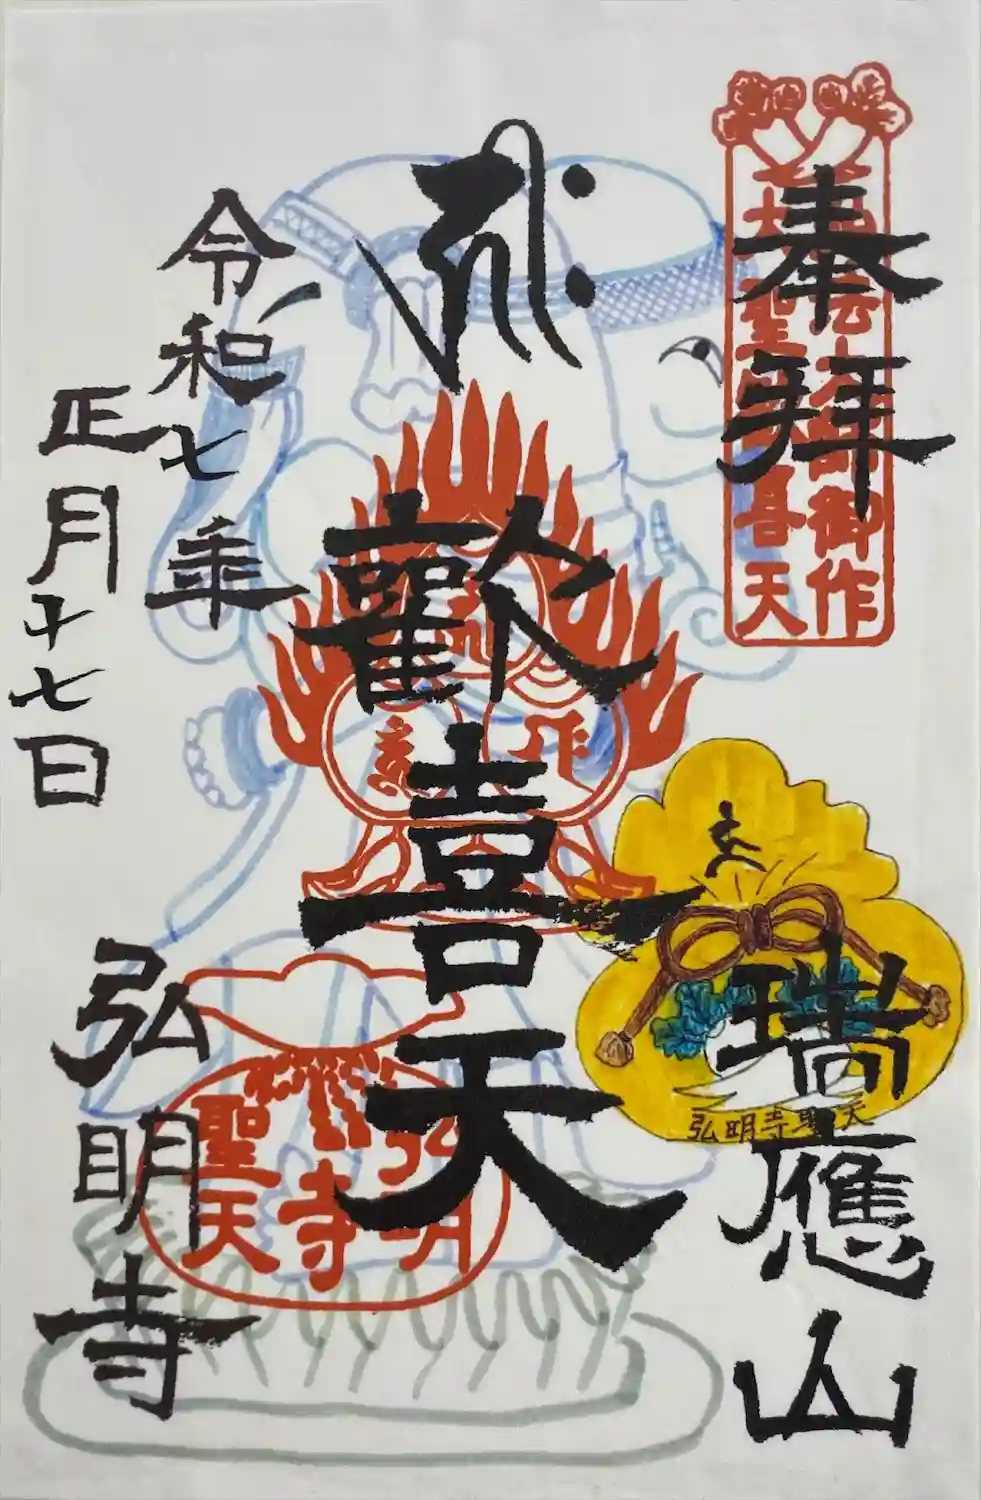 奉拝
聖
喜天
御作
歡喜天
瑞應山
弘明寺聖天
令和七年
正月十七日
弘明寺
弘明寺
聖天